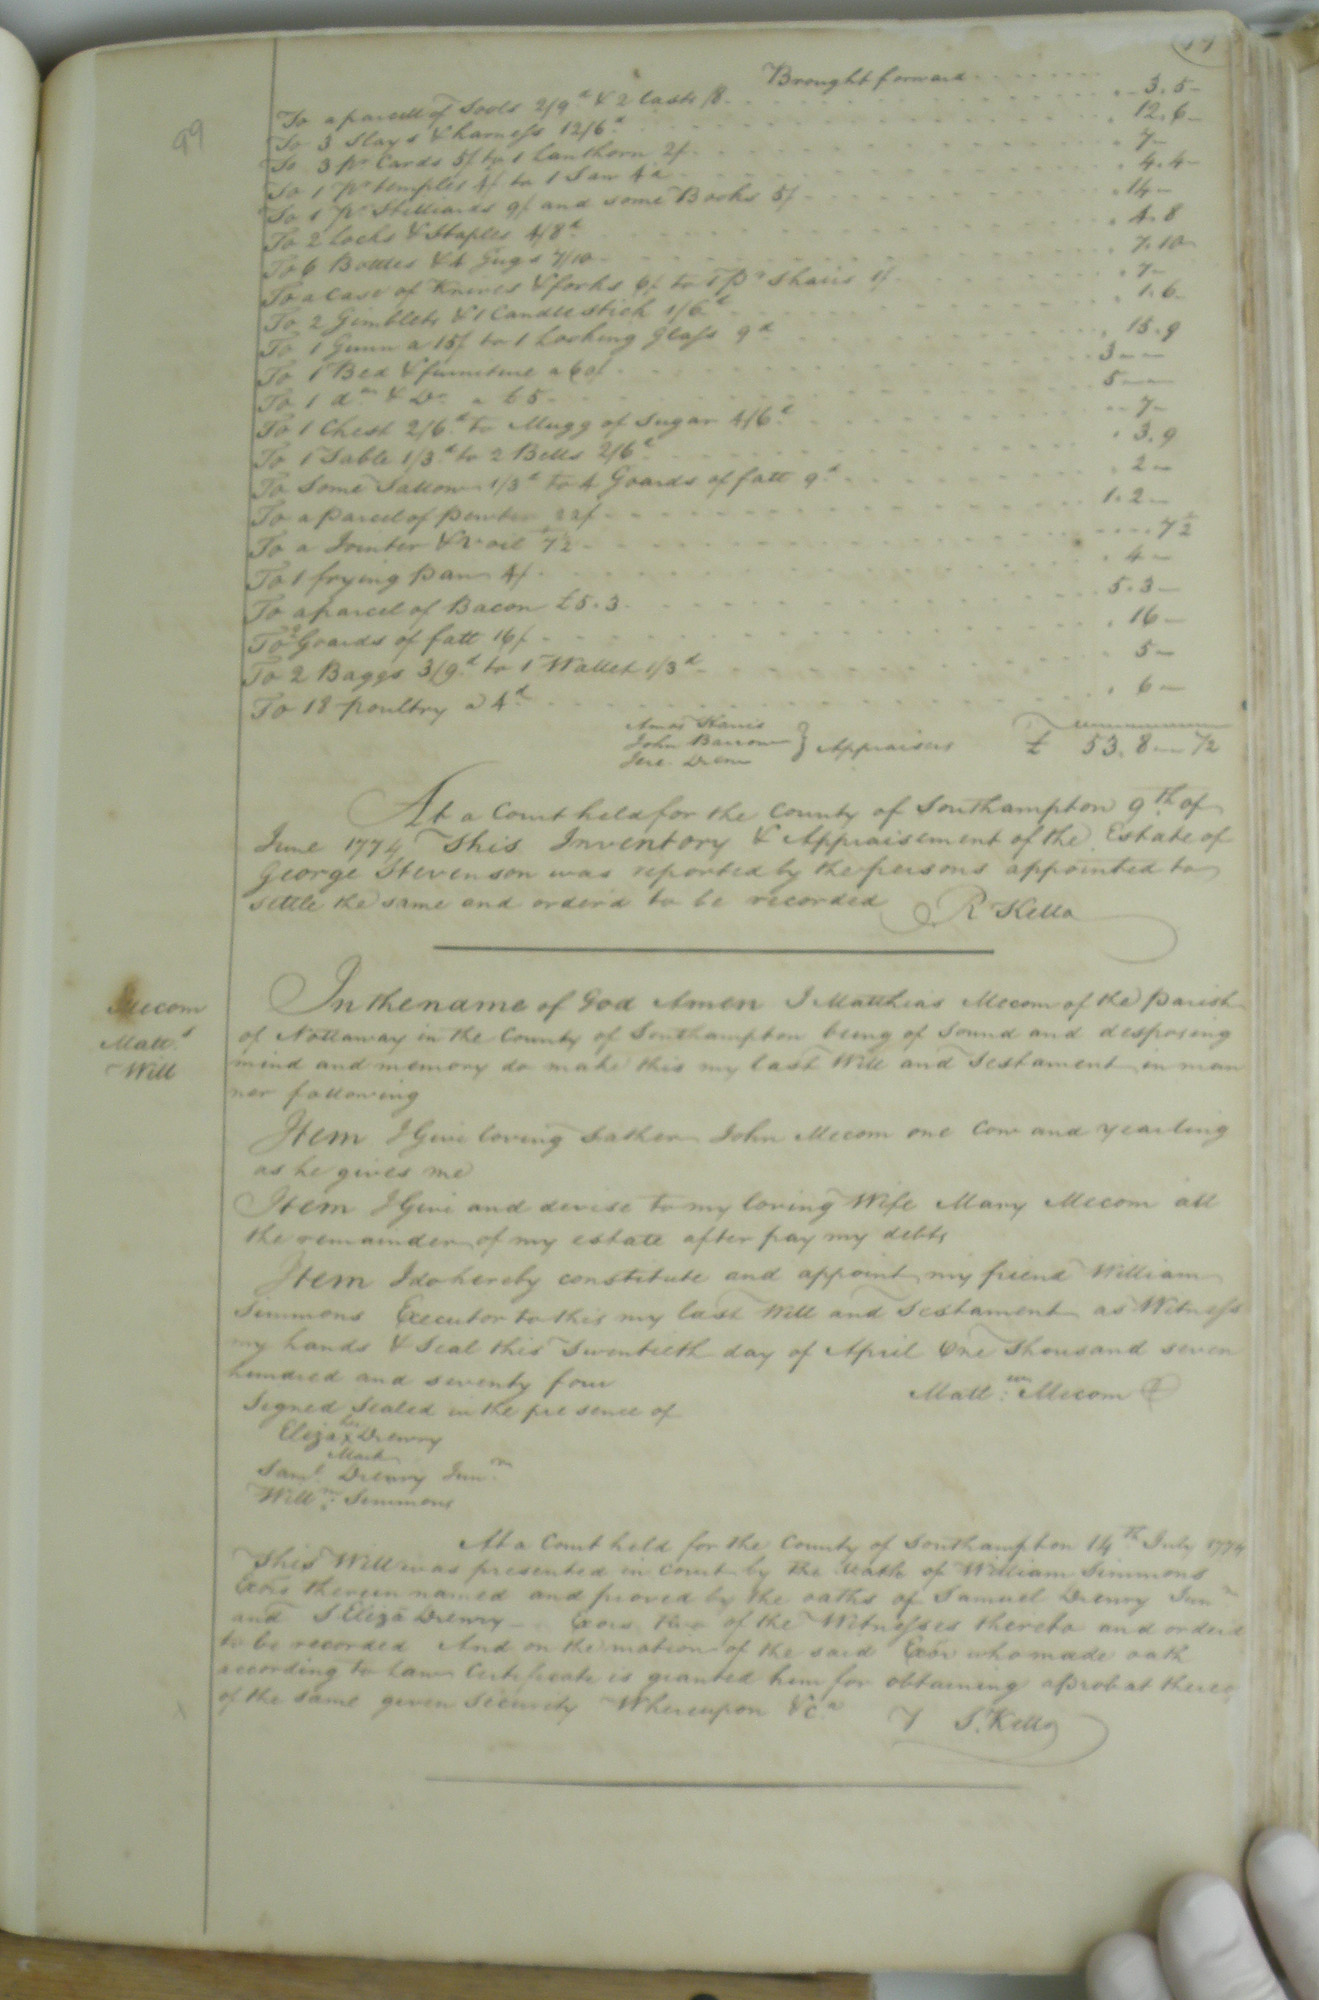 99
Brought forward
To a parcell of Tools 2/9d & 2 lasts /8 3.5
To 3 Slays & harness 12/6d 12.6
To 3 pr Cards 5/ to 1 Lanthorn 2/ 7
To 1 pr temples 4/ to 1 Saw 4d 4.4
To 1 pr Stilliards 9/ and some Books 5/ 14
To 2 locks & Staples 4/8d 4.8
To 6 Bottles & 4 Jugs 7/10 7.10
To a Case of Knives & forks 6/ to 1 pr Shairs 1/ 7
To 2 Gimblets & 1 Candlestick 1/6d 1.6
To 1 Gunn a 15/ to 1 Looking Glass 9d 15.9
To 1 Bed & furniture a 60/ 3
To 1 do & Do a £5 5
To 1 Chest 2/6d to Mugg of Sugar 4/6d 7
To 1 Table 1/3d to 2 Bells 2/6d 3.9
To Some Tallow 1/3d to 4 Goards of fatt 9d 2
To a parcel of pewter 22/ 1.2
To a Jointer & 7½ 7½
To 1 frying pan 4/ 4
To a parcel of Bacon £5.3 5.3
To 2 Goards of fatt 16/ 16
To 2 Baggs 3/9d to 1 Wallet 1/3d 5
To 18 poultry a 4d 6
Amos Harris
John Barrow } Appraisers £ 53.8 - 7½
Jere. Drew
At a Court held for the County of Southampton 9th of
June 1774 This Inventory & Appraisement of the Estate of
George Stevenson was reported by the persons appointed to
settle the same and orderd to be recorded R Kello
Mecom
Matts
Will
In the name of God Amen I Matthias Mecom of the Parish
of Nottaway in the County of Southampton being of Sound and desposing
mind and memory do make this my last Will and Testament in man
ner following
Item I Give loving Father John Mecom one Cow and yearling
as he gives me
Item I Give and devise to my loving Wife Mary Mecom all
the remainder of my estate after pay my debts
Item I do hereby constitute and appoint my friend William
Simmons Executor to this my last Will and Testament as Witness
my hands & Seal this Twentieth day of April One Thousand seven
hundred and seventy four Matt: Mecom
Signed Sealed in the presence of
Eliza her x Drewry
Mark
Saml Drewry Junr
Willm: Simmons
At a Court held for the County of Southampton 14th July 1774
This Will was presented in Court by the Oath of William Simmons
Exor therein named and proved by the oaths of Samuel Drewry Junr
and Eliza Drewry two of the Witnesses thereto and orderd
to be recorded And on the motion of the said Exor who made oath
according to Law Certificate is granted him for obtaining a probat there
of the same given Security Whereupon &ca S. Kello